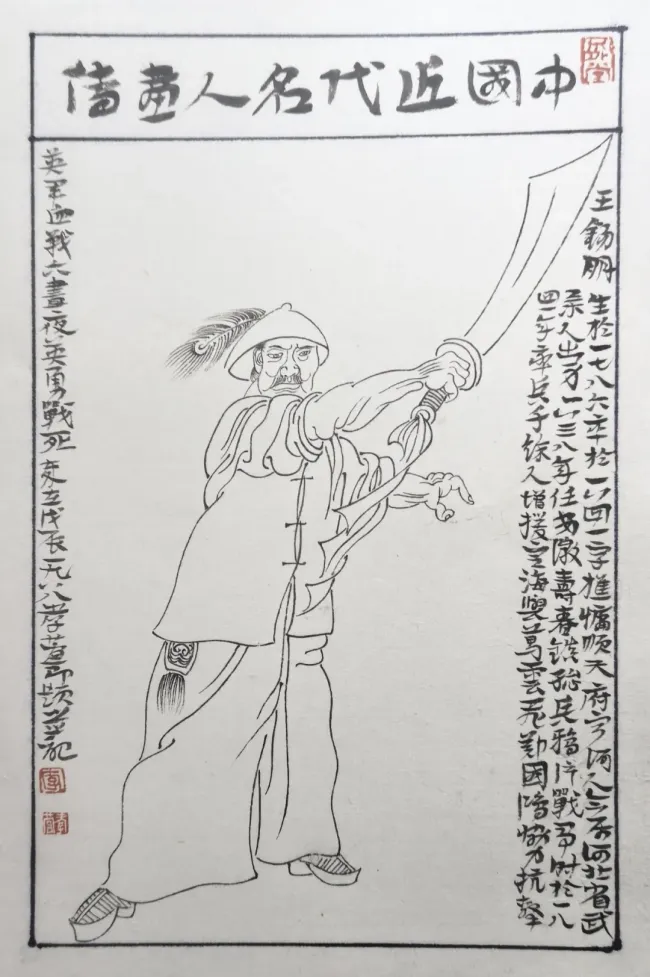 中國近代名人畫傳
王錫朋
生於一七八六卒於一八四一字樵慵順天府寧河人今屬河北省武
舉人出身一八三八年任安徽壽春鎮總兵鴉片戰爭時於一八
四一年率兵千餘人增援定海與葛雲飛鄭國鴻協力抗擊
英軍血戰六晝夜英勇戰死 歲在戊辰一九八八李題并記